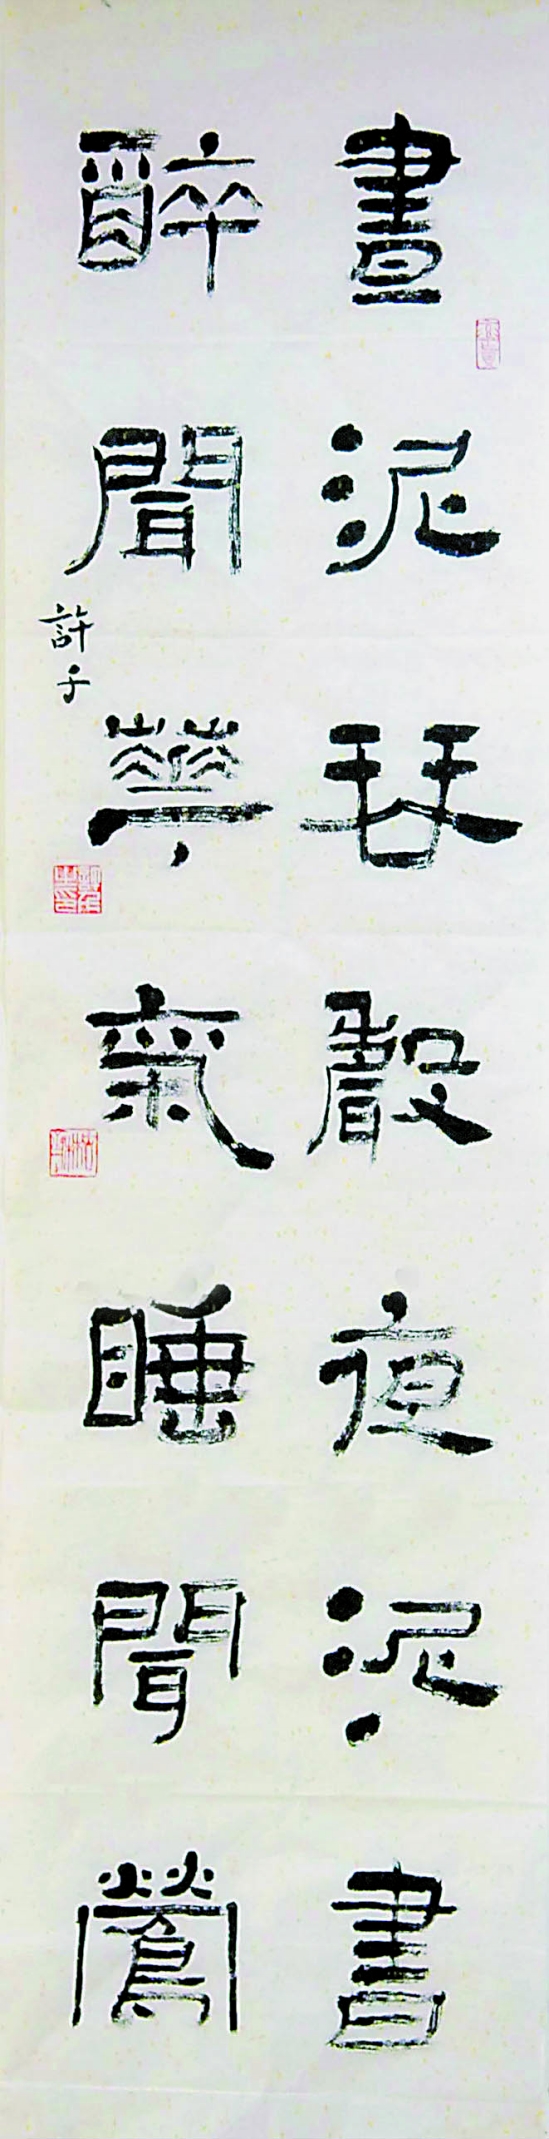 晝泥琴聲夜泥書
醉聞華氣睡聞鶯
許子